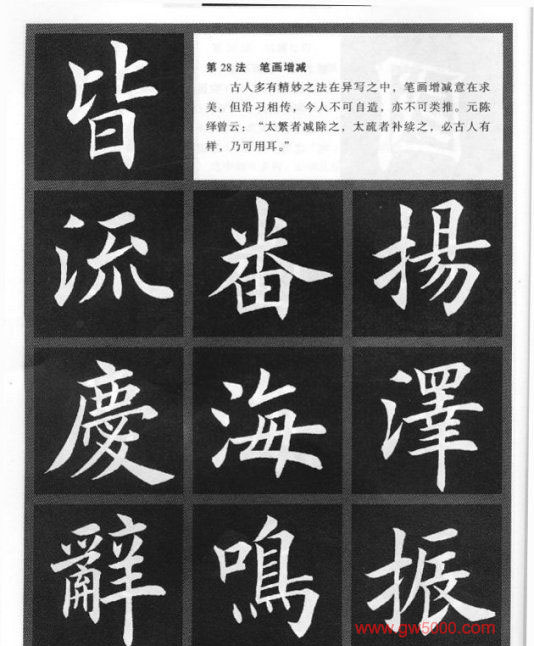 皆
第28法 笔画增减
古人多有精妙之法在异写之中，笔画增减意在求
美，但沿习相传，今人不可自造，亦不可类推。元陈
绎曾云：“太繁者减除之，太疏者补续之，必古人有
样，乃可用耳。”
流 番 揚
慶 海 澤
辭 鳴 振
www.gw5000.com